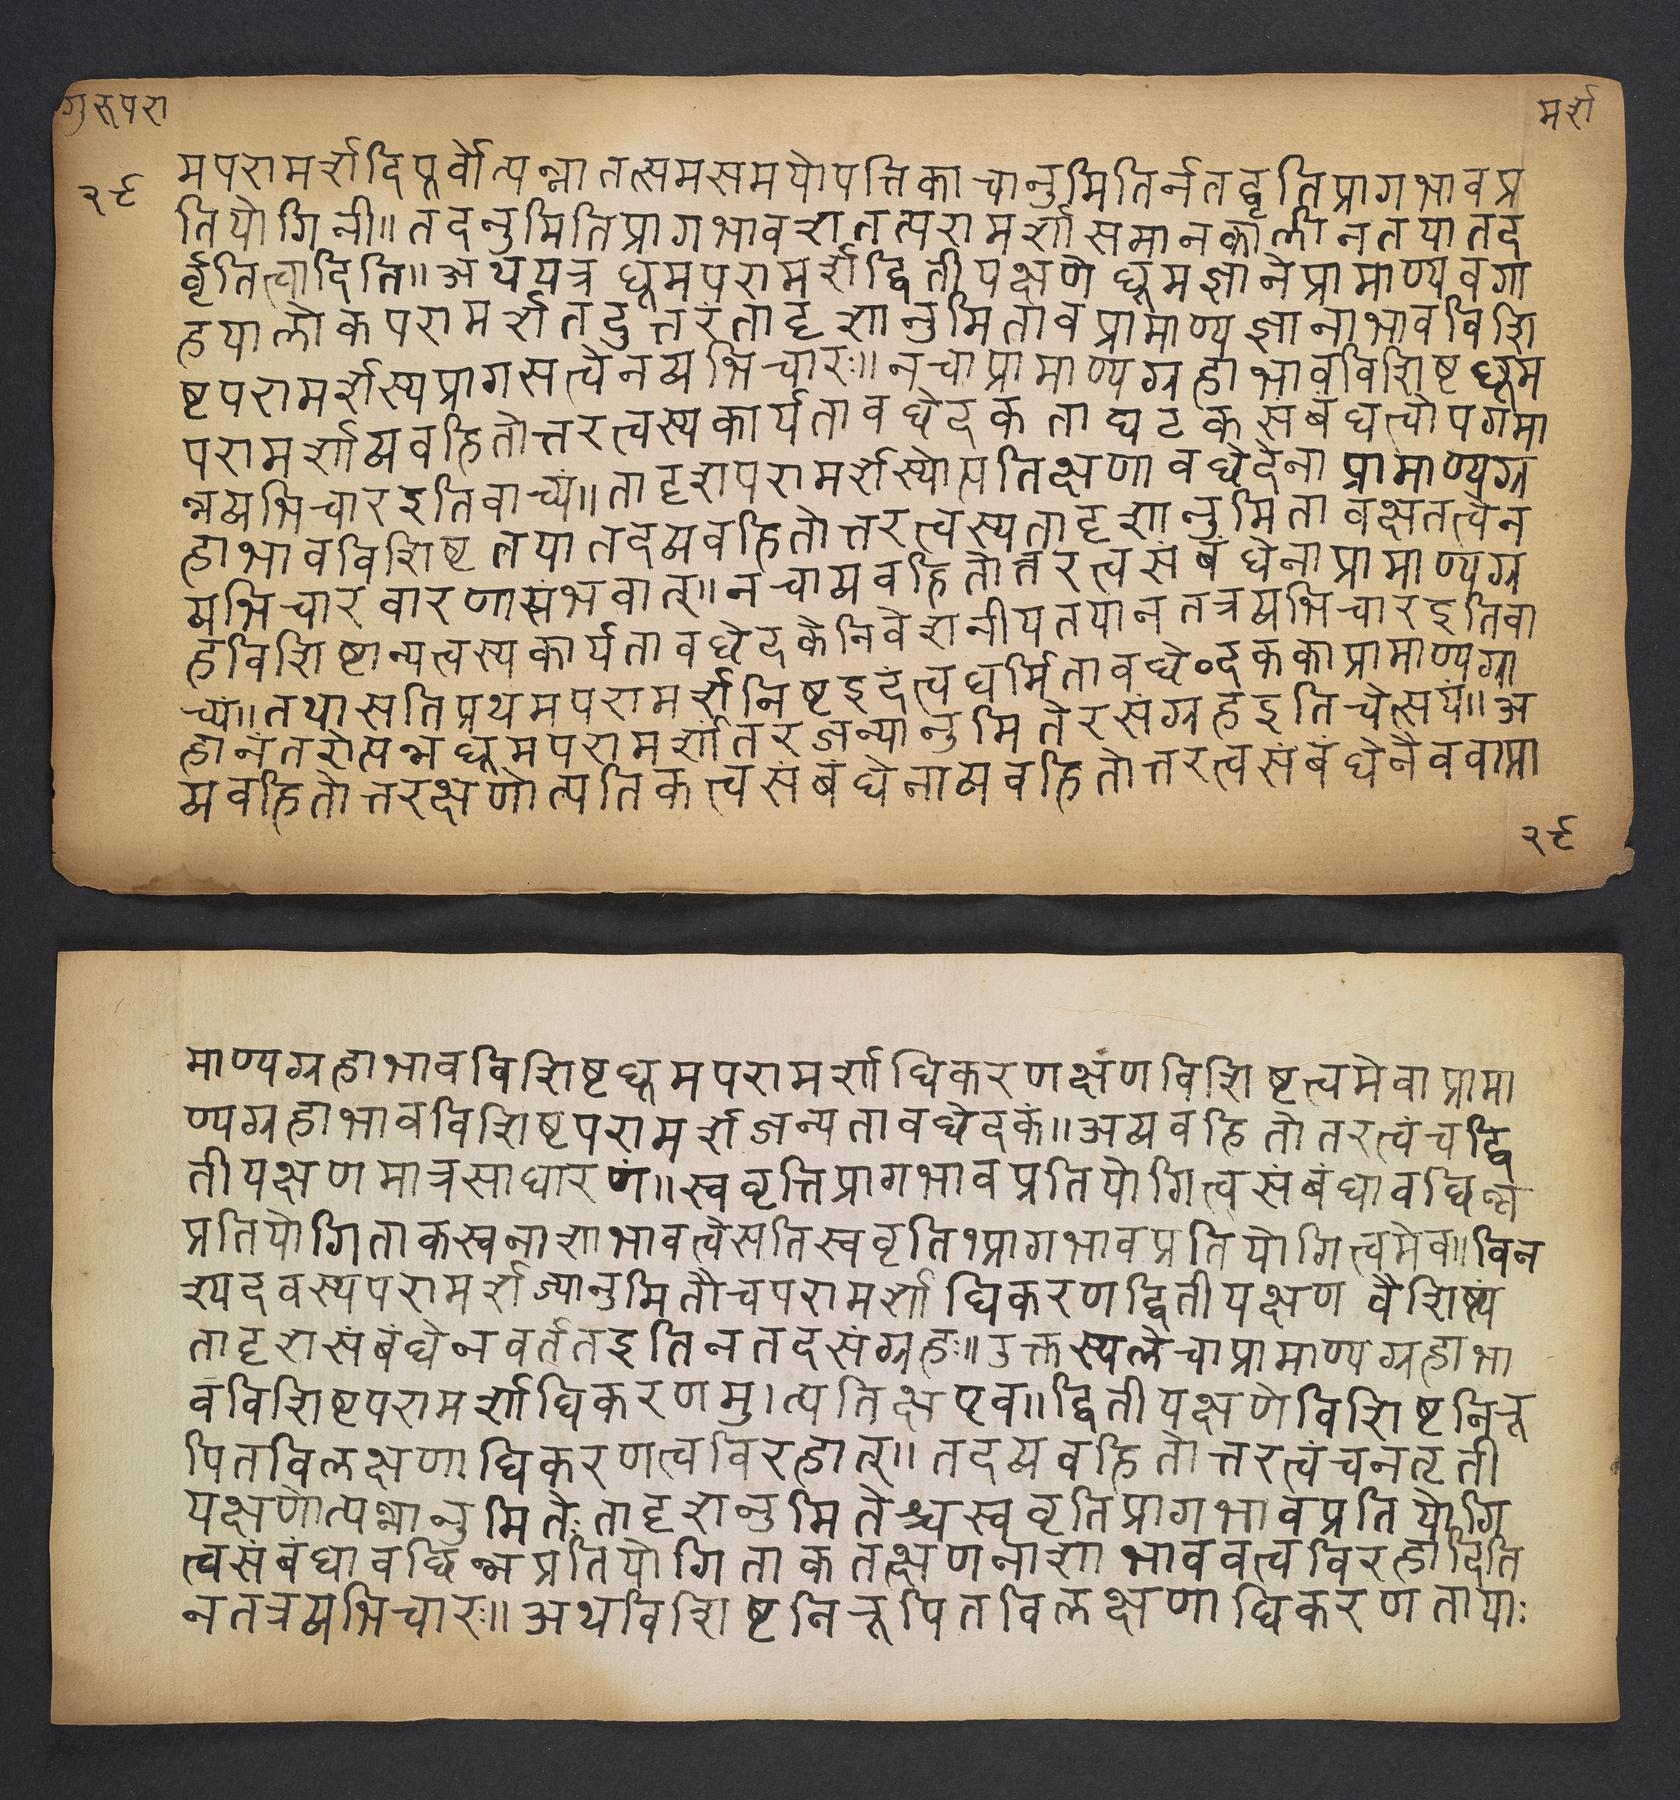 गुरुपरा
मर्श
२९
मपरामर्शादिपूर्वोत्पन्नातत्समसमयोपत्तिकाचानुमितिर्नतद्वृतिप्रागभावप्र
तियोगिनी॥तदनुमितिप्रागभावशतत्परामर्शासमानकालीनतयातद
र्वृतित्वादिति॥अथयत्र धूमपरामर्शद्वितीयक्षणे धूमज्ञानेप्रामाण्यवगा
हयालोकपरामर्शतदुत्तरंतादृशानुमितावप्रामाण्यज्ञानाभावविशि
ष्टपरामर्शस्यप्रागसत्वेनव्यभिचारः॥नचाप्रामाण्यग्रहाभावविशिष्टधूम
परामर्शाव्यवहितोत्तरत्वस्यकार्यतावछेदकताघटकसंबंधत्वोपगमा
न्नव्यभिचारइतिवाच्यं॥तादृशपरामर्शस्योत्पतिक्षणावछेदेनाप्रामाण्यग्र
हाभावविशिष्टतयातदव्यवहितोत्तरत्वस्यतादृशानुमितावक्षतत्वेन
व्यभिचारवारणासंभवात्॥नचाव्यवहितोतरत्वसंबंधेनाप्रामाण्यग्र
हविशिष्टान्यत्वस्यकार्यतावछेदकेनिवेशनीयतयानतत्रव्यभिचारइतिवा
च्यं॥तथासतिप्रथमपरामर्शनिष्टइदंत्वधर्मितावछे०दककाप्रामाण्यग्रा
हानंतरोत्पन्नधूमपरामर्शातरजन्यानुमितेरसंग्रहइतिचेत्सयं॥अ
व्यवहितोत्तरक्षणोत्पतिकत्वसंबंधेनाव्यवहितोत्तरत्वसंबंधेनैववाप्रा
२९
माण्यग्रहाभावविशिष्टधूमपरामर्शाधिकरणक्षंणविशिष्टत्वमेवाप्रामा
ण्यग्रहाभावविशिष्टपरामर्शजन्यतावछेदकं॥अव्यवहितोतरत्वंचद्वि
तीयक्षणमात्रसाधारणं॥स्ववृत्तिप्रागभावप्रतियोगित्वसंबंधावछिन्न
प्रतियोगिताकस्वनाशाभावत्वेसतिस्ववृति१प्रागभावप्रतियोगित्वमेव॥विन
श्यदवस्थपरामर्शज्यानुमितौचपरामर्शाधिकरणद्वितीयक्षण वैशिष्यं
तादृशसंबंधेनवर्ततइतिनतदसंग्रहः॥उक्तस्थलेचाप्रामाण्यग्रहाभा
वविशिष्टपरामर्शाधिकरणमु।त्पतिक्षएव॥द्वितीयक्षणेविशिष्टनिरू
पितविलक्षणाधिकरणत्वविरहात्॥तदव्यवहितोत्तरत्वंचनतृती
यक्षणोत्पन्नानुमितेःतादृशनुमितेश्चस्ववृतिप्रागभावप्रतियोगि
त्वसंबंधावछिन्नप्रतियोगिताकतत्क्षणनाशाभाववत्वविरहादिति
नतत्रव्यभिचारः॥अथविशिष्टनिरूपितविलक्षणाधिकरणतायाः